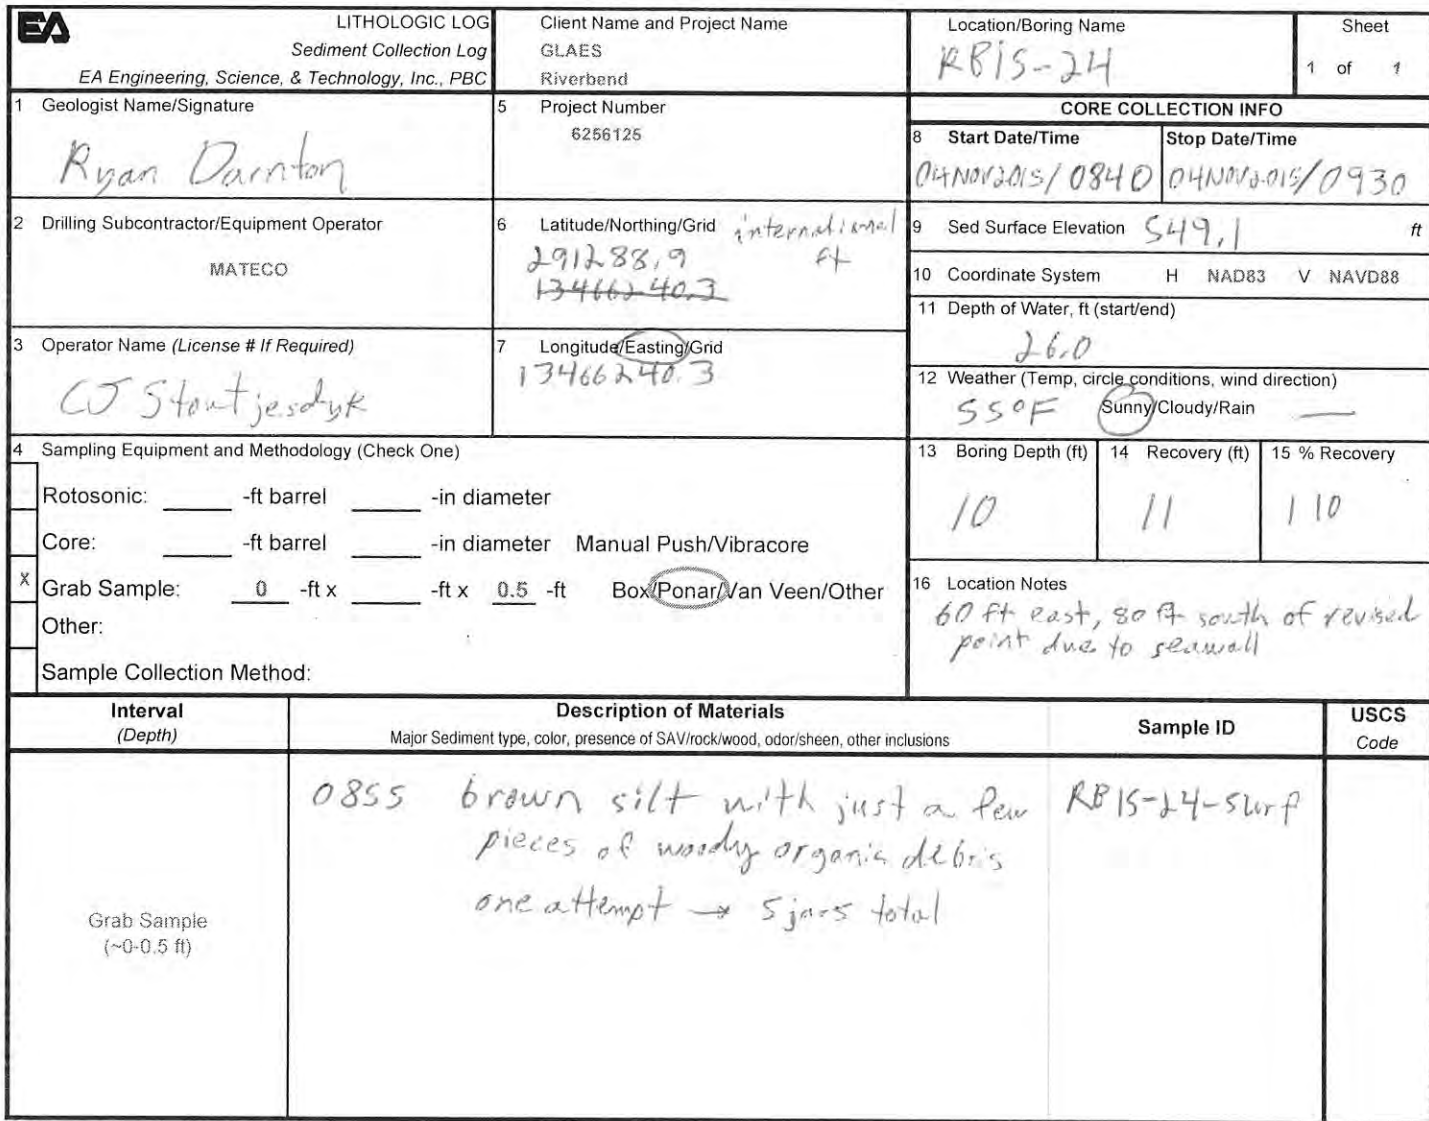 EA
LITHOLOGIC LOG
Sediment Collection Log
EA Engineering, Science, & Technology, Inc., PBC
Client Name and Project Name
GLAES
Riverbend
Location/Boring Name
RB15-24
Sheet
1 of 1
1 Geologist Name/Signature
Ryan Darnton
5 Project Number
6256125
CORE COLLECTION INFO
8 Start Date/Time
04NOV2015/0840
Stop Date/Time
04NOV2015/0930
2 Drilling Subcontractor/Equipment Operator
MATECO
6 Latitude/Northing/Grid international
291288.9 ft
13466240.3
9 Sed Surface Elevation 549.1 ft
10 Coordinate System H NAD83 V NAVD88
11 Depth of Water, ft (start/end)
26.0
3 Operator Name (License # If Required)
CJ Stoutjesdyk
7 Longitude/Easting/Grid
13466240.3
12 Weather (Temp, circle conditions, wind direction)
55°F Sunny/Cloudy/Rain —
4 Sampling Equipment and Methodology (Check One)
Rotosonic: ____ -ft barrel ____ -in diameter
Core: ____ -ft barrel ____ -in diameter Manual Push/Vibracore
X Grab Sample: 0 -ft x ____ -ft x 0.5 -ft Box/Ponar/Van Veen/Other
Other:
Sample Collection Method:
13 Boring Depth (ft)
10
14 Recovery (ft)
11
15 % Recovery
110
16 Location Notes
60 ft east, 80 ft south of revised
point due to seawall
Interval
(Depth)
Description of Materials
Major Sediment type, color, presence of SAV/rock/wood, odor/sheen, other inclusions
Sample ID
USCS
Code
Grab Sample
(~0-0.5 ft)
0855 brown silt with just a few
pieces of woody organic debris
one attempt → 5 jars total
RB15-24-surf